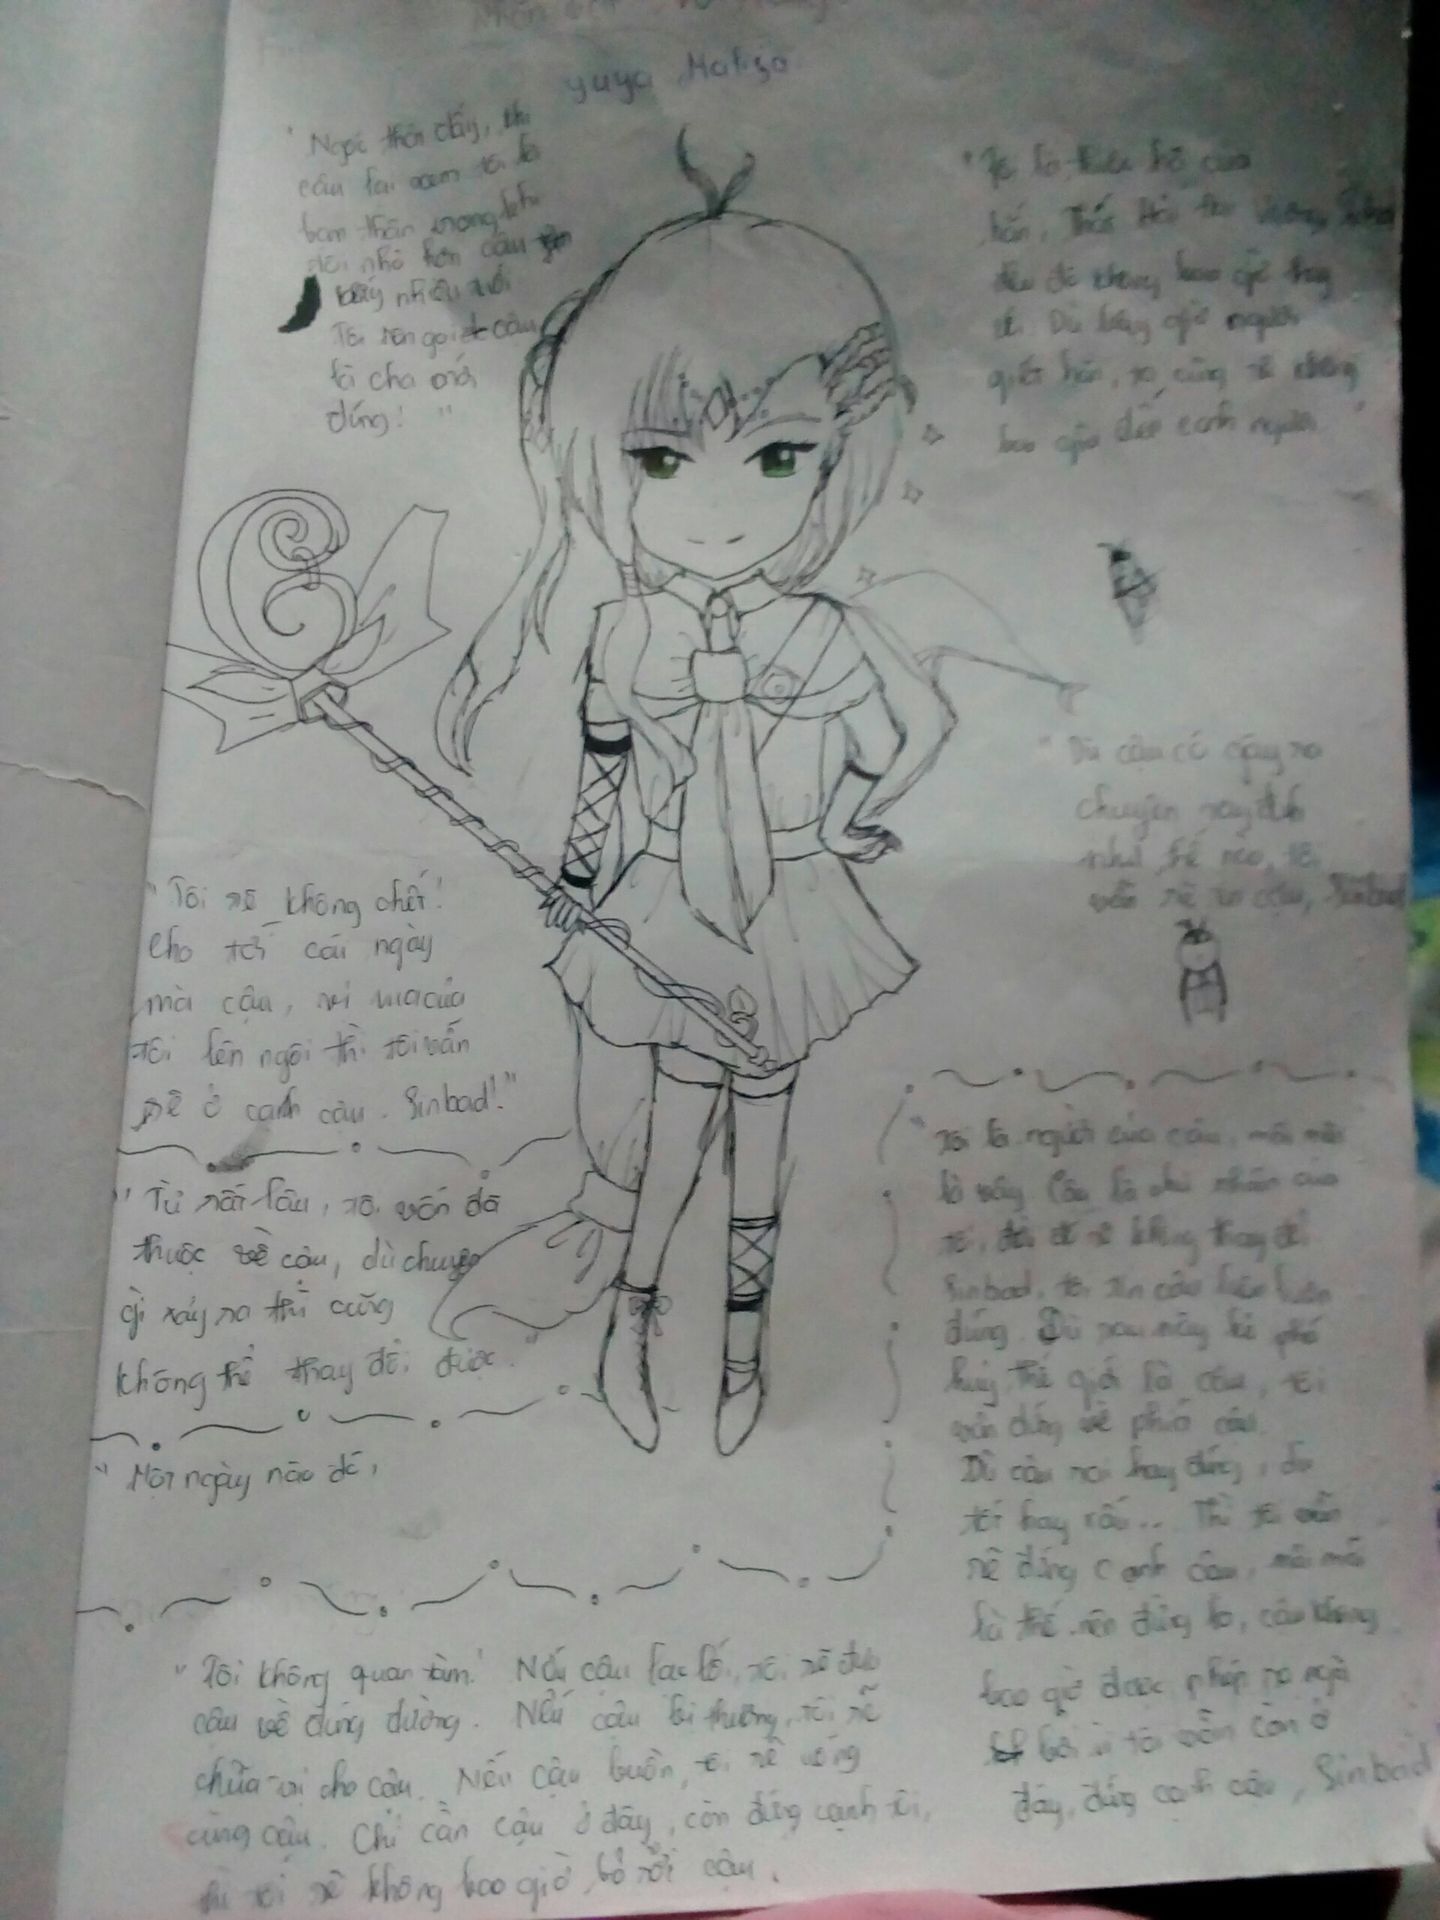 yuya
"Ngạc
cậu lại xem tôi là
bạn thân trong khi
tôi nhỏ hơn cậu
bấy nhiêu tuổi
Tôi nên gọi cậu
là cha mới
đúng! "
"Tôi sẽ không chết!
cho tới cái ngày
mà cậu, vị vua của
tôi lên ngôi thì tôi vẫn
sẽ ở cạnh cậu. Sinbad!"
"Từ rất lâu, tôi vốn đã
thuộc về cậu, dù chuyện
gì xảy ra thì cũng
không thể thay đổi được."
"Một ngày nào đó,
"Tôi không quan tâm! Nếu cậu lạc lối, tôi sẽ đưa
cậu về đúng đường. Nếu cậu bị thương, tôi sẽ
chữa trị cho cậu. Nếu cậu buồn, tôi sẽ
cùng cậu. Chỉ cần cậu ở đây, còn đứng cạnh tôi,
thì tôi sẽ không bao giờ bỏ rơi cậu.
"Ta là của
hắn, Thất Hải
điều đó không bao giờ thay
Dù bây giờ ngươi
giết hắn, ta cũng sẽ không
bao giờ đến cạnh ngươi
"Dù cậu có gây ra
chuyện
như thế nào, tôi
vẫn sẽ tin cậu, Sinbad
"Tôi là người của cậu, mãi mãi
là vậy. Cậu là chủ nhân của
tôi, điều đó sẽ không thay đổi
Sinbad, tôi tin cậu luôn luôn
đúng. Dù sau này kẻ phá
hủy thế giới là cậu, tôi
vẫn đứng về phía cậu.
Dù cậu sai hay đúng, dù
tốt hay xấu... Thì tôi vẫn
sẽ đứng cạnh cậu, mãi mãi
là thế nên đừng lo, cậu không
bao giờ được phép
bởi vì tôi vẫn còn ở
đây, đứng cạnh cậu, Sinbad